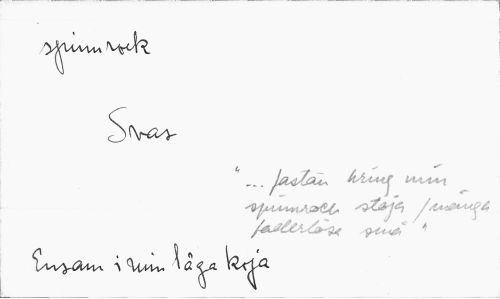 spinnrock
Svas
"... fastän kring min
spinnrock stoja / många
faderlösa små"
Ensam i min låga koja